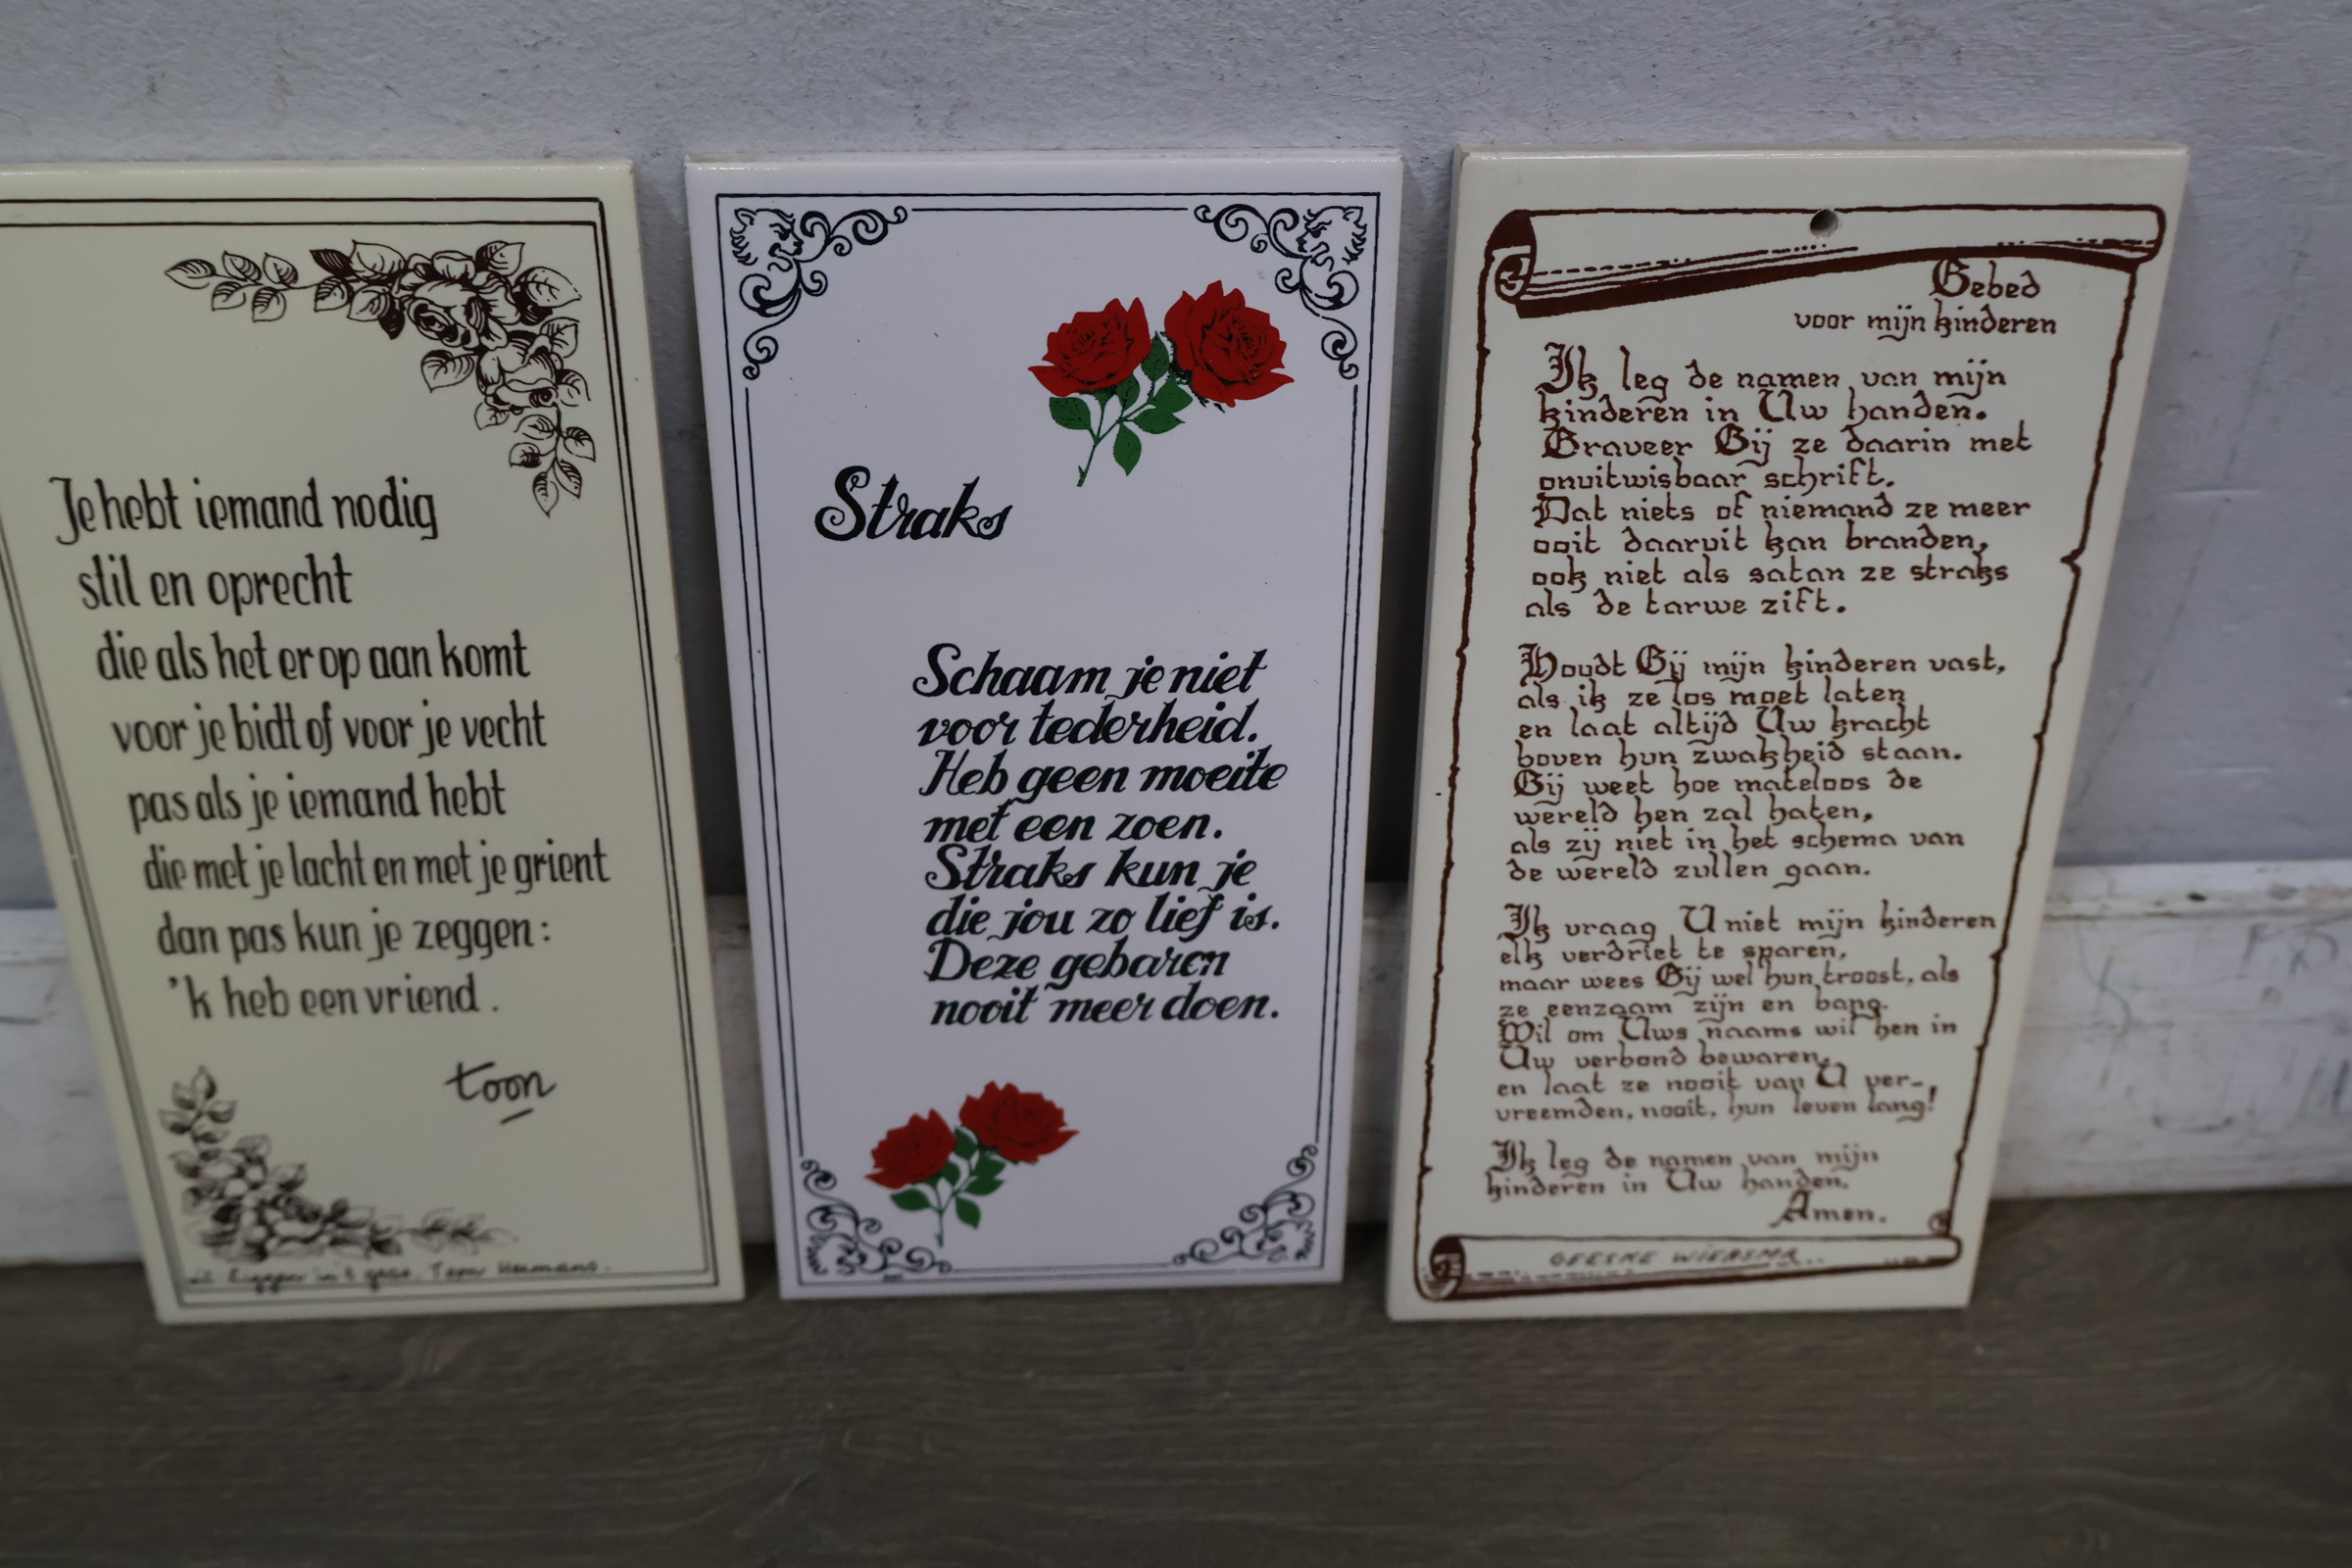 Je hebt iemand nodig
stil en oprecht
die als het er op aan komt
voor je bidt of voor je vecht
pas als je iemand hebt
die met je lacht en met je grient
dan pas kun je zeggen:
'k heb een vriend.
toon
in 't gras. Toon Hermans.
Straks
Schaam je niet
voor tederheid.
Heb geen moeite
met een zoen.
Straks kun je
die jou zo lief is.
Deze gebaren
nooit meer doen.
Gebed
voor mijn kinderen
Ik leg de namen van mijn
kinderen in Uw handen.
Graveer Gij ze daarin met
onuitwisbaar schrift.
Dat niets of niemand ze meer
ooit daaruit kan branden,
ook niet als satan ze straks
als de tarwe zift.
Houdt Gij mijn kinderen vast,
als ik ze los moet laten
en laat altijd Uw kracht
boven hun zwakheid staan.
Gij weet hoe mateloos de
wereld hen zal haten,
als zij niet in het schema van
de wereld zullen gaan.
Ik vraag U niet mijn kinderen
elk verdriet te sparen,
maar wees Gij wel hun troost, als
ze eenzaam zijn en bang.
Wil om Uws naams wil hen in
Uw verbond bewaren,
en laat ze nooit van U ver-
vreemden, nooit, hun leven lang!
Ik leg de namen van mijn
kinderen in Uw handen.
Amen.
GEESKE WIERSMA